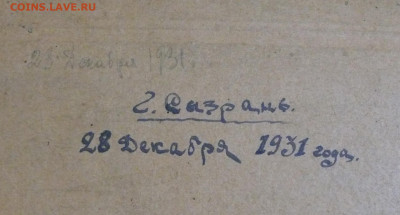 COINS.LAVE.RU
28 Декабря 1931
г. Сызрань.
28 Декабря 1931 года.